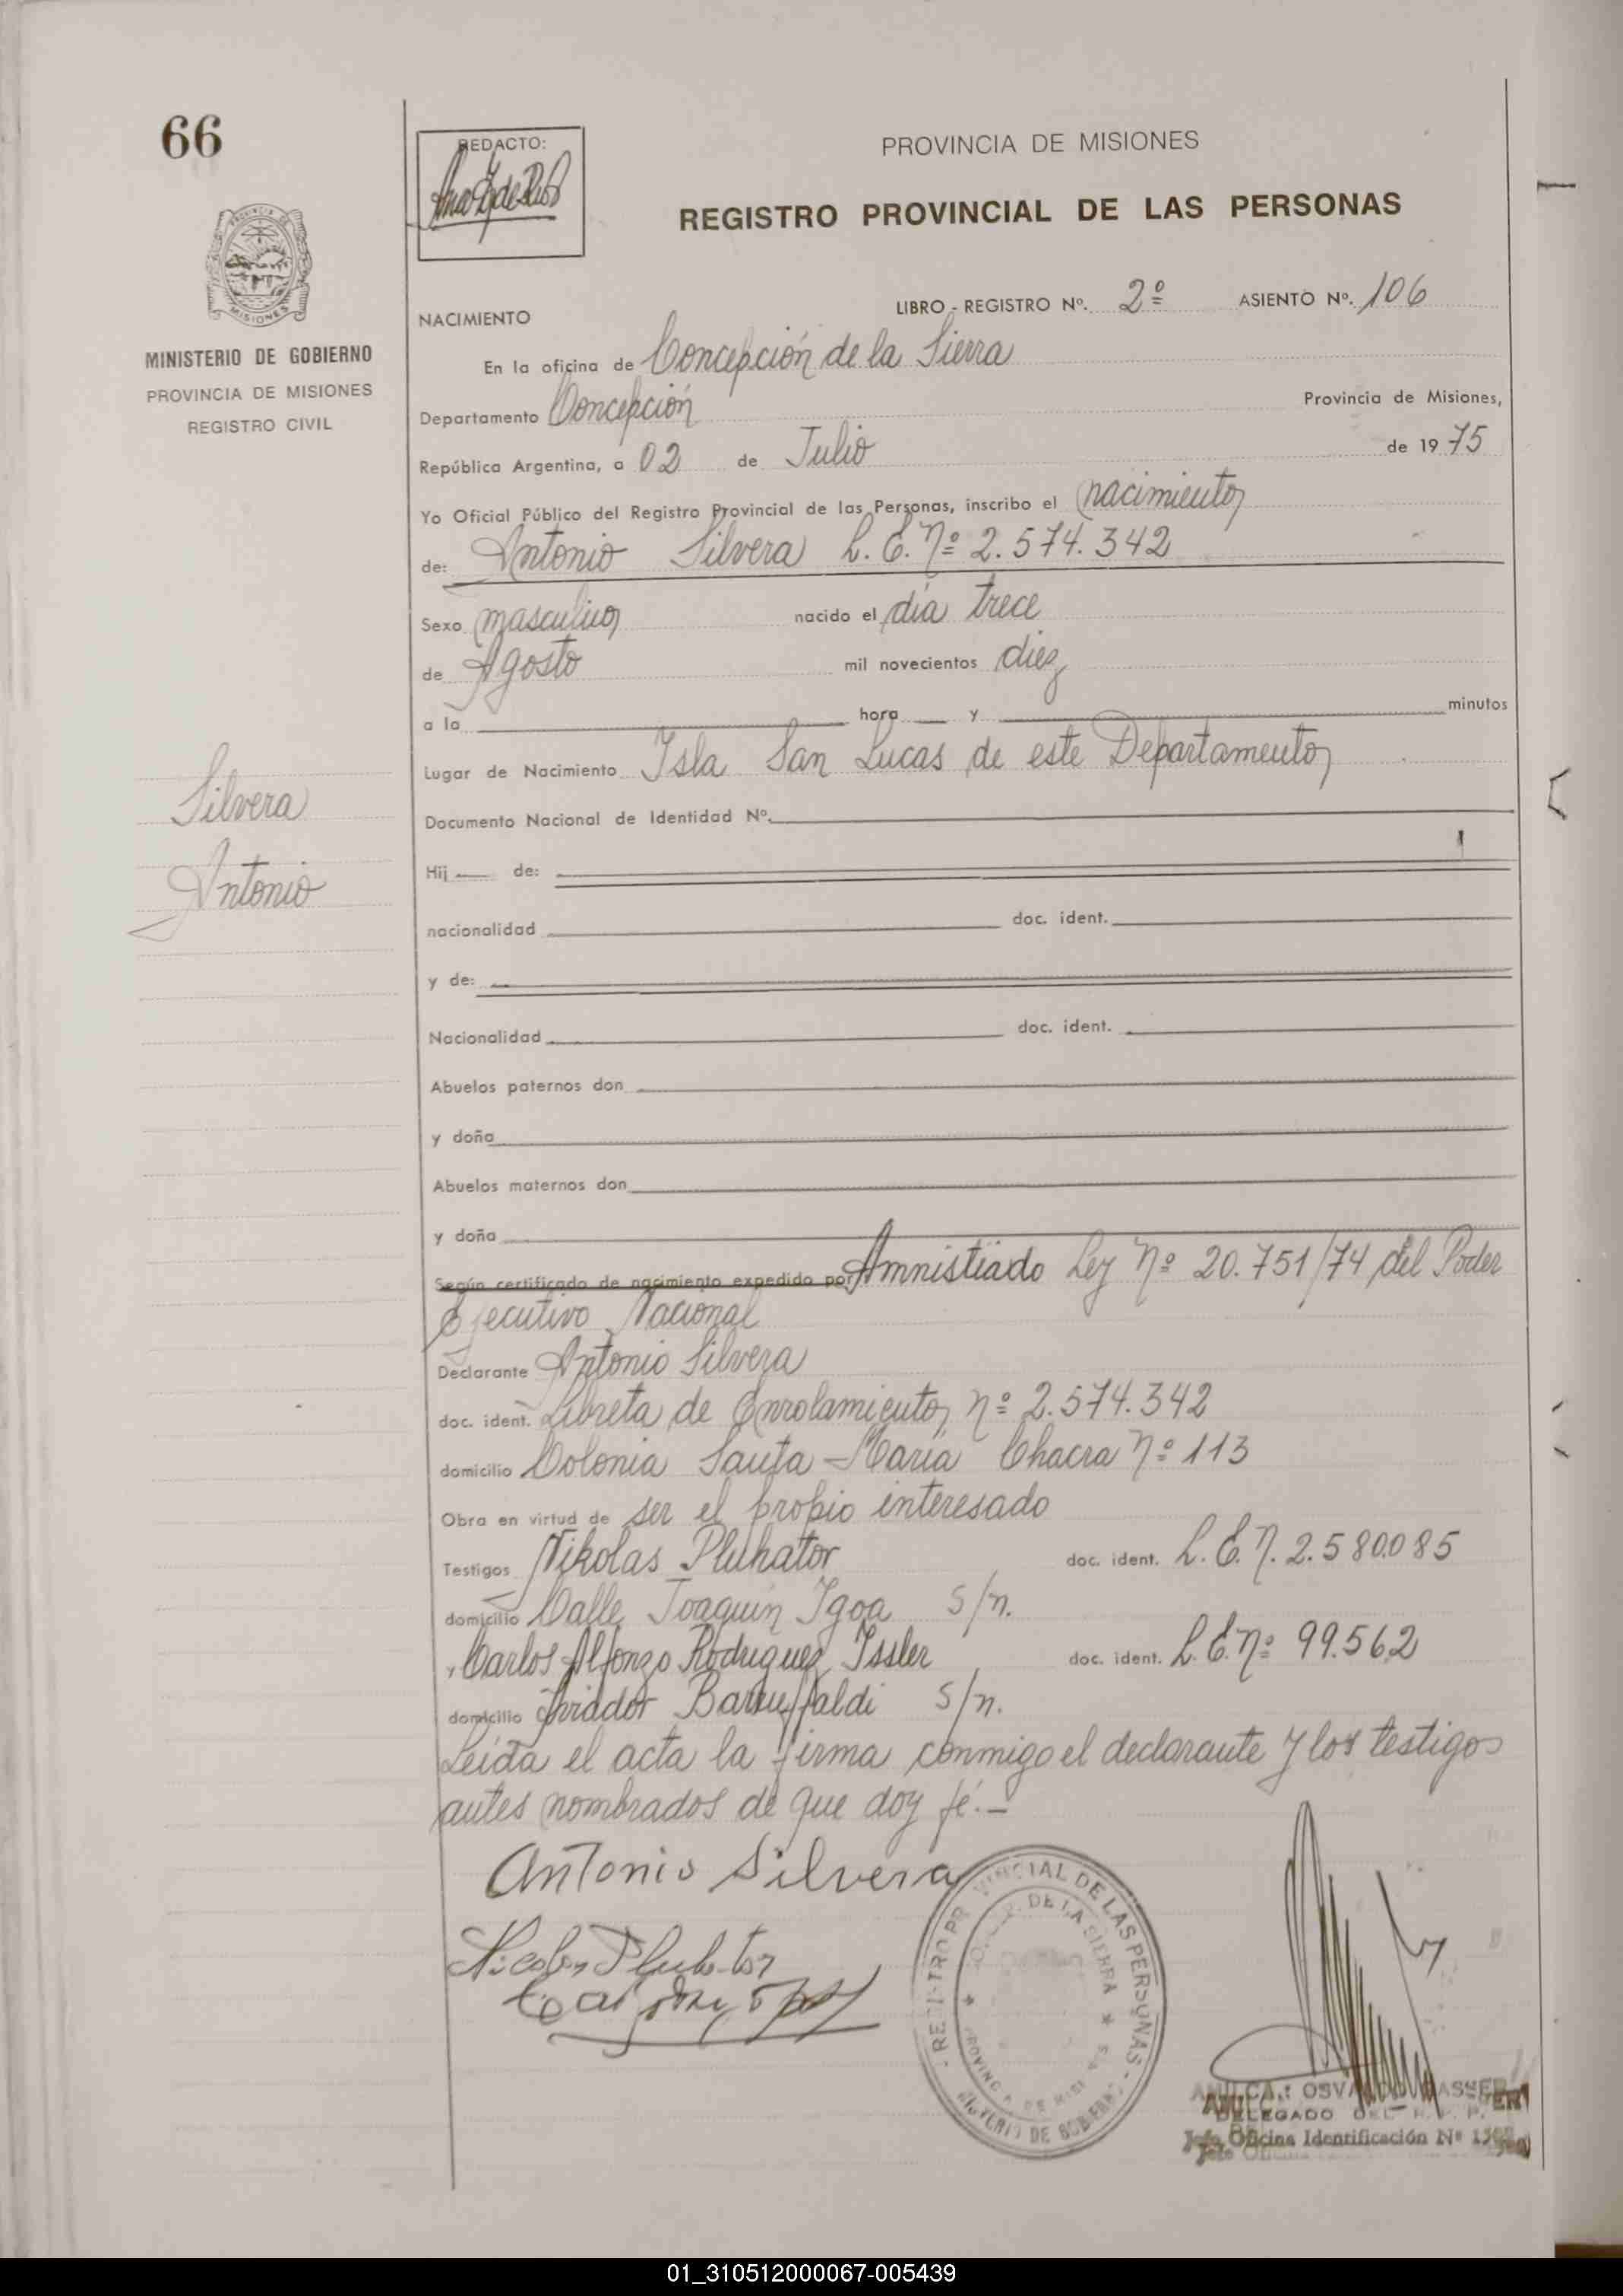 66
REDACTO:
PROVINCIA DE MISIONES
REGISTRO PROVINCIAL DE LAS PERSONAS
MISIONES
MINISTERIO DE GOBIERNO
PROVINCIA DE MISIONES
REGISTRO CIVIL
LIBRO - REGISTRO Nº. 2º ASIENTO Nº. 106
NACIMIENTO
En la oficina de Concepción de la Sierra
Departamento Concepción Provincia de Misiones,
República Argentina, a 02 de Julio de 1975
Yo Oficial Público del Registro Provincial de las Personas, inscribo el nacimiento
de: Antonio Silvera L. E. Nº 2.574.342
Sexo masculino nacido el día trece
de Agosto mil novecientos diez
a la hora y minutos
Lugar de Nacimiento Isla San Lucas de este Departamento
Silvera
Antonio
Documento Nacional de Identidad Nº.
Hij de:
nacionalidad doc. ident.
y de:
Nacionalidad doc. ident.
Abuelos paternos don
y doña
Abuelos maternos don
y doña
Según certificado de nacimiento expedido por Amnistiado Ley Nº 20.751/74 del Poder
Ejecutivo Nacional
Declarante Antonio Silvera
doc. ident. Libreta de Enrolamiento nº 2.574.342
domicilio Colonia Santa María Chacra Nº 113
Obra en virtud de ser el propio interesado
Testigos Nikolas Pluhator doc. ident. L. E. N. 2.580.085
domicilio Calle Joaquin Igoa s/n.
, Carlos Alfonzo Rodriguez Issler doc. ident. L. E. nº 99.562
domicilio Aviador Baruffaldi s/n.
Leída el acta la firma conmigo el declarante y los testigos
antes nombrados de que doy fé.-
Antonio Silvera
Nicolas Pluhator
DE LAS PERSONAS
DE LA SIERRA
DELEGADO DEL R. P. P.
Jefe Oficina Identificación Nº
01_310512000067-005439